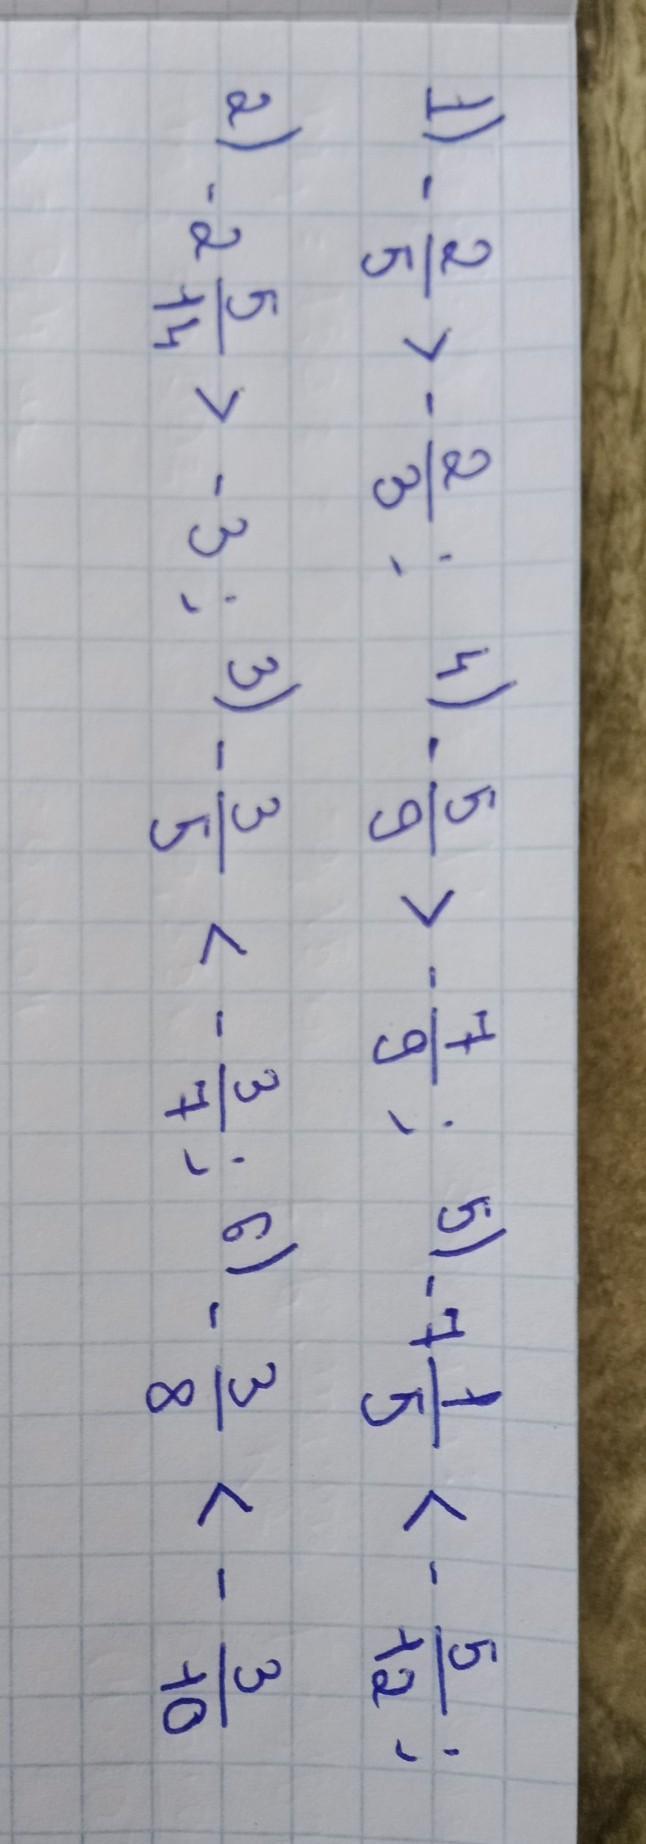 1) - 2/5 > - 2/3 ; 4) - 5/9 > - 7/9 ; 5) - 7 1/5 < - 5/12 ;
2) - 2 5/14 > - 3 ; 3) - 3/5 < - 3/7 ; 6) - 3/8 < - 3/10